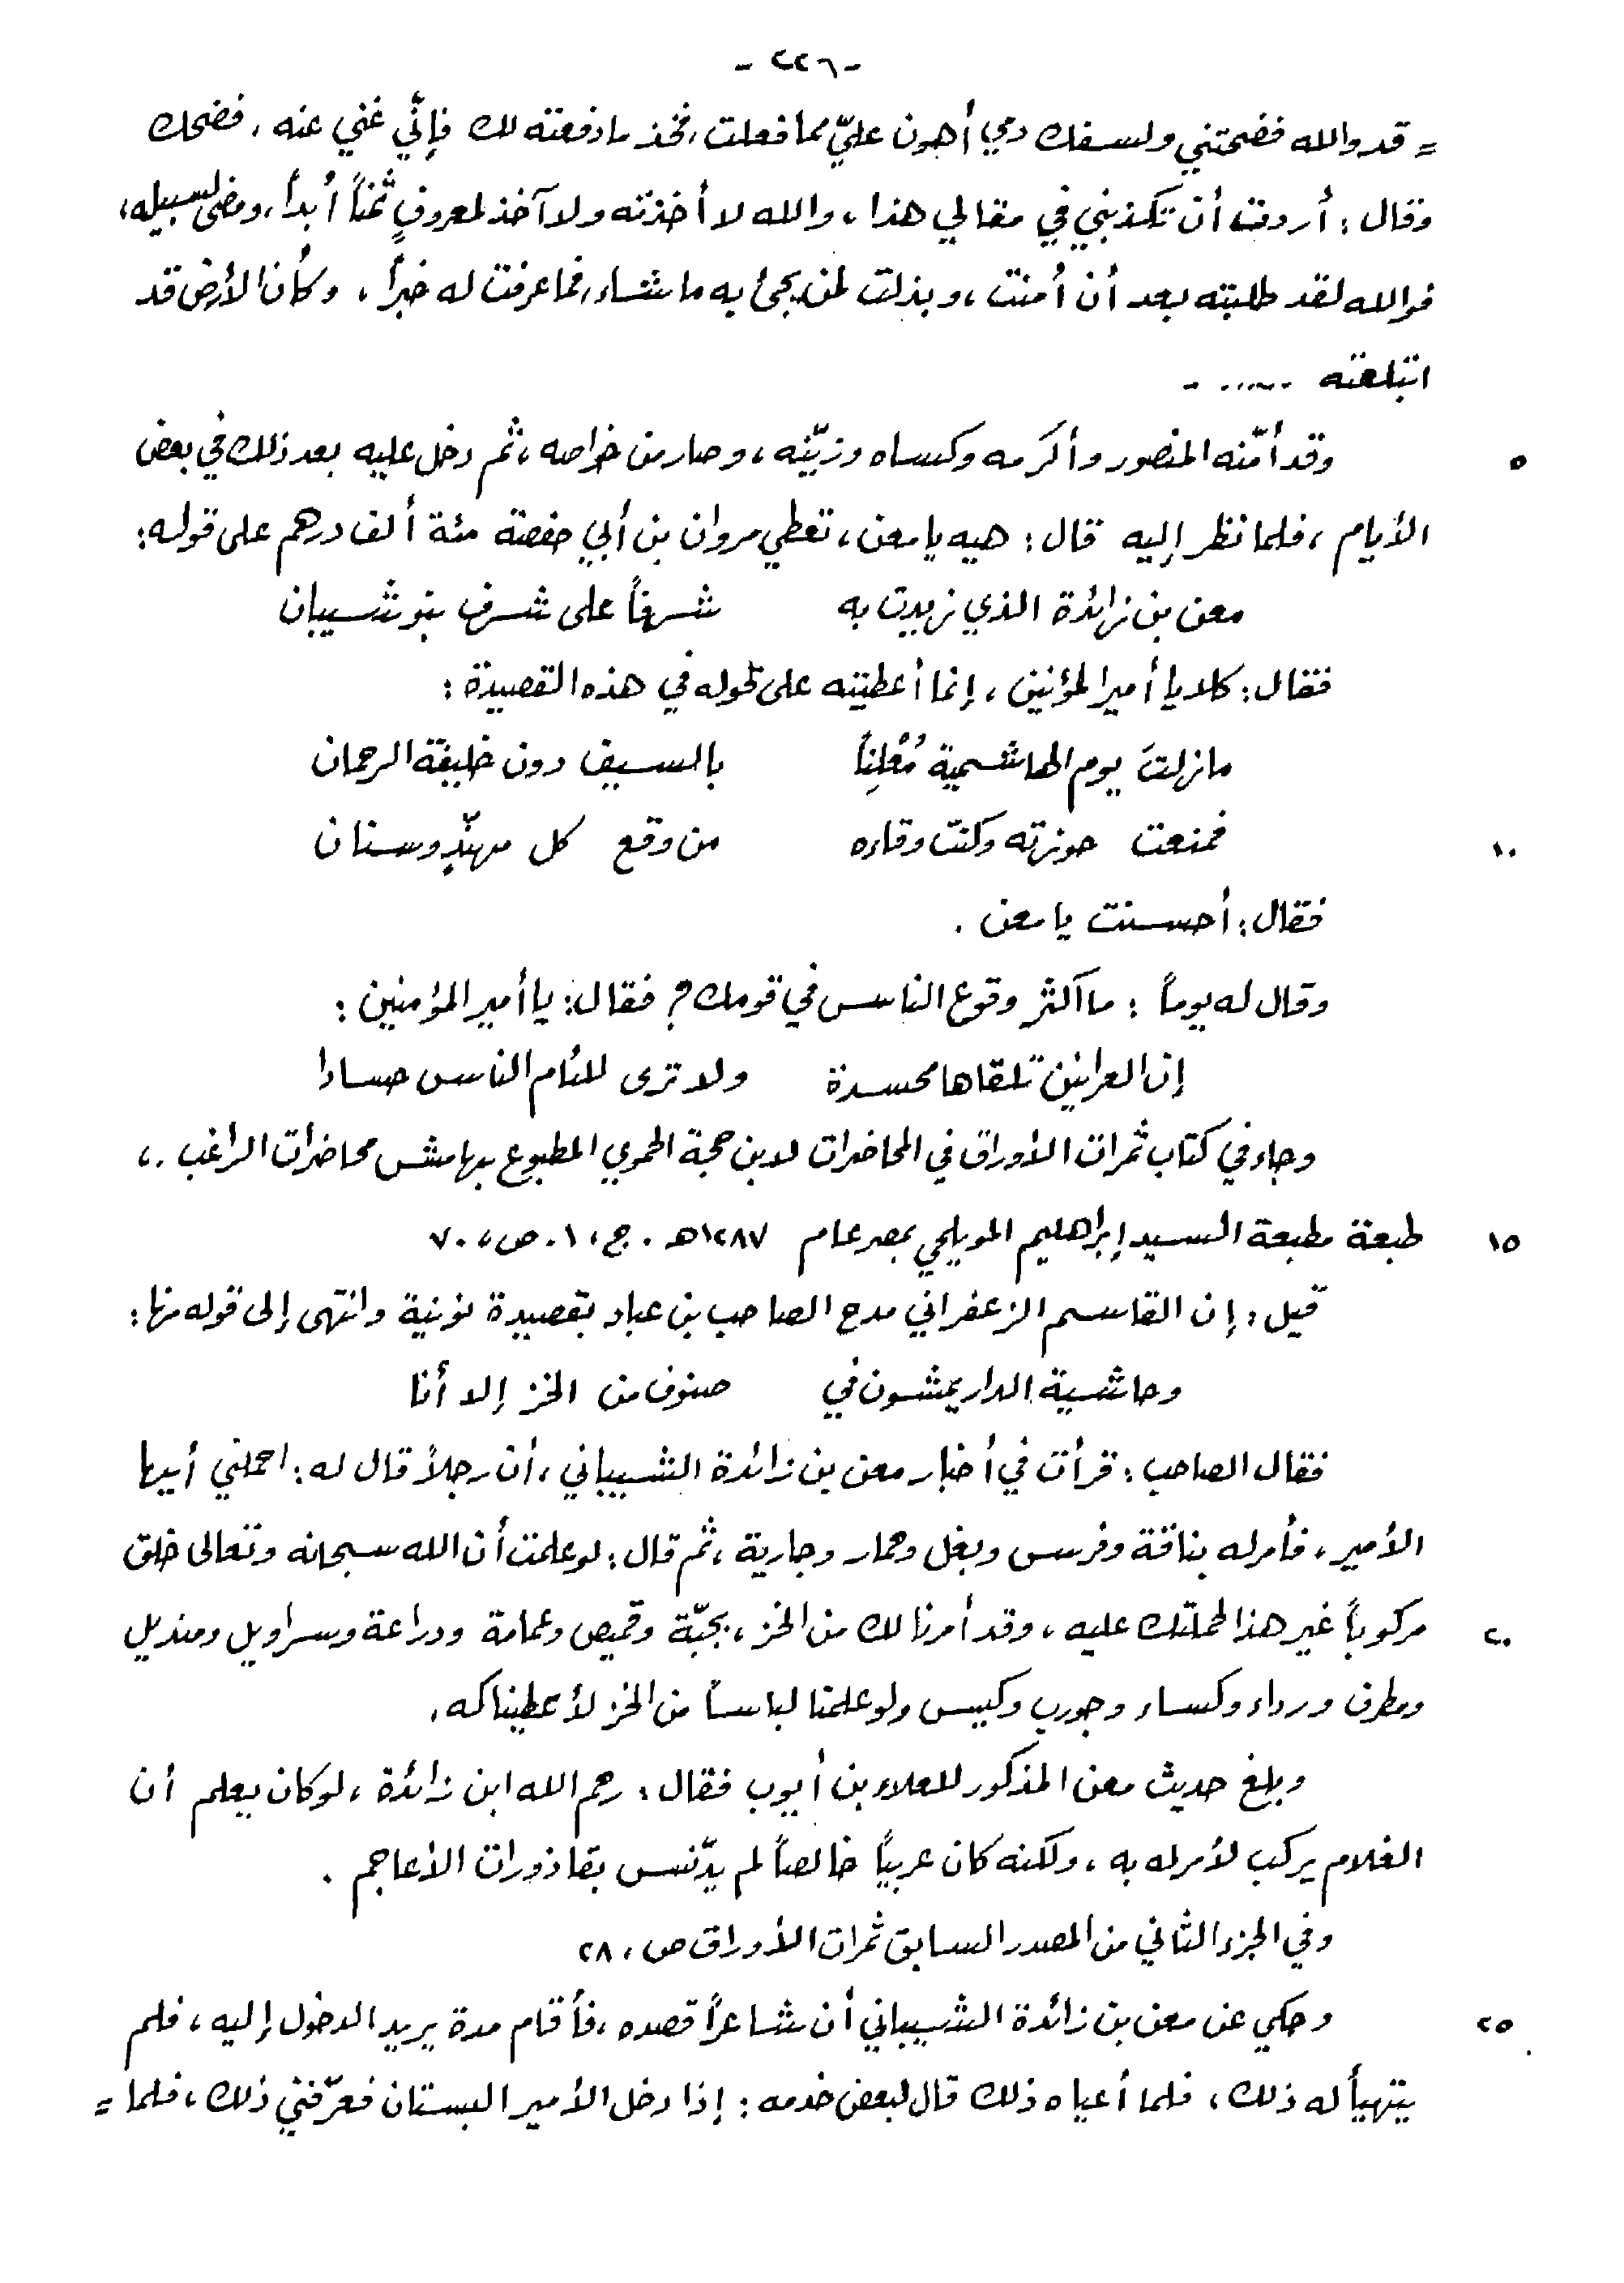 - ٢٢٦ -
= قد والله فضحتني ولسفك دمي أهون عليّ مما فعلت، فخذ ما دفعته لك فإنّي غني عنه، فضحك
وقال: أردت أن تكذبني في مقالي هذا، والله لا أخذته ولا آخذ لمعروفٍ ثمناً أبداً، ومضى لسبيله،
فوالله لقد طلبته بعد أن أمنت، وبذلت لمن يجئ به ما شاء، فما عرفت له خبراً، وكأن الأرض قد
ابتلعته ........
وقد أمّنه المنصور وأكرمه وكساه وزيّنه، وصار من خواصه، ثم دخل عليه بعد ذلك في بعض
٥
الأيام، فلما نظر إليه قال: هيه يا معن، تعطي مروان بن أبي حفصة مئة ألف درهم على قوله:
معن بن زائدة الذي زيدت به شرفاً على شرف بنو شيبان
فقال: كلا يا أمير المؤمنين، إنما أعطيته على قوله في هذه القصيدة:
ما زلتَ يوم الهاشمية مُعْلِناً بالسيف دون خليفة الرحمان
فمنعت حوزته وكنت وقاءه من وقع كل مهنّدٍ وسنان
١٠
فقال: أحسنت يا معن.
وقال له يوماً: ما أكثر وقوع الناس في قومك؟ فقال: يا أمير المؤمنين:
إن العرانين تلقاها محسدة ولا ترى للئام الناس حسادا
وجاء في كتاب ثمرات الأوراق في المحاضرات لابن حجة الحموي المطبوع بهامش محاضرات الراغب.،
طبعة مطبعة السيد إبراهيم المويلحي بمصر عام ١٢٨٧هـ. ج، ١. ص، ٧٠
١٥
قيل: إن القاسم الزعفراني مدح الصاحب بن عباد بقصيدة نونية وانتهى إلى قوله منها:
وحاشية الدار يمشون في صنوف من الخز إلا أنا
فقال الصاحب: قرأت في أخبار معن بن زائدة الشيباني، أن رجلاً قال له: احملني أيها
الأمير، فأمر له بناقة وفرس وبغل وحمار وجارية، ثم قال: لو علمت أن الله سبحانه وتعالى خلق
مركوباً غير هذا لحملتك عليه، وقد أمرنا لك من الخز، بجبّة وقميص وعمامة ودراعة وسراويل ومنديل
٢٠
ومطرف ورداء وكساء وجورب وكيس ولو علمنا لباساً من الخز لأعطيناكه.
وبلغ حديث معن المذكور للعلاء بن أيوب فقال: رحم الله ابن زائدة، لو كان يعلم أن
الغلام يركب لأمر له به، ولكنه كان عربياً خالصاً لم يدّنس بقاذورات الأعاجم.
وفي الجزء الثاني من المصدر السابق ثمرات الأوراق ص، ٢٨
وحكي عن معن بن زائدة الشيباني أن شاعراً قصده، فأقام مدة يريد الدخول إليه، فلم
٢٥
يتهيأ له ذلك، فلما أعياه ذلك قال لبعض خدمه: إذا دخل الأمير البستان فعرّفني ذلك، فلما =